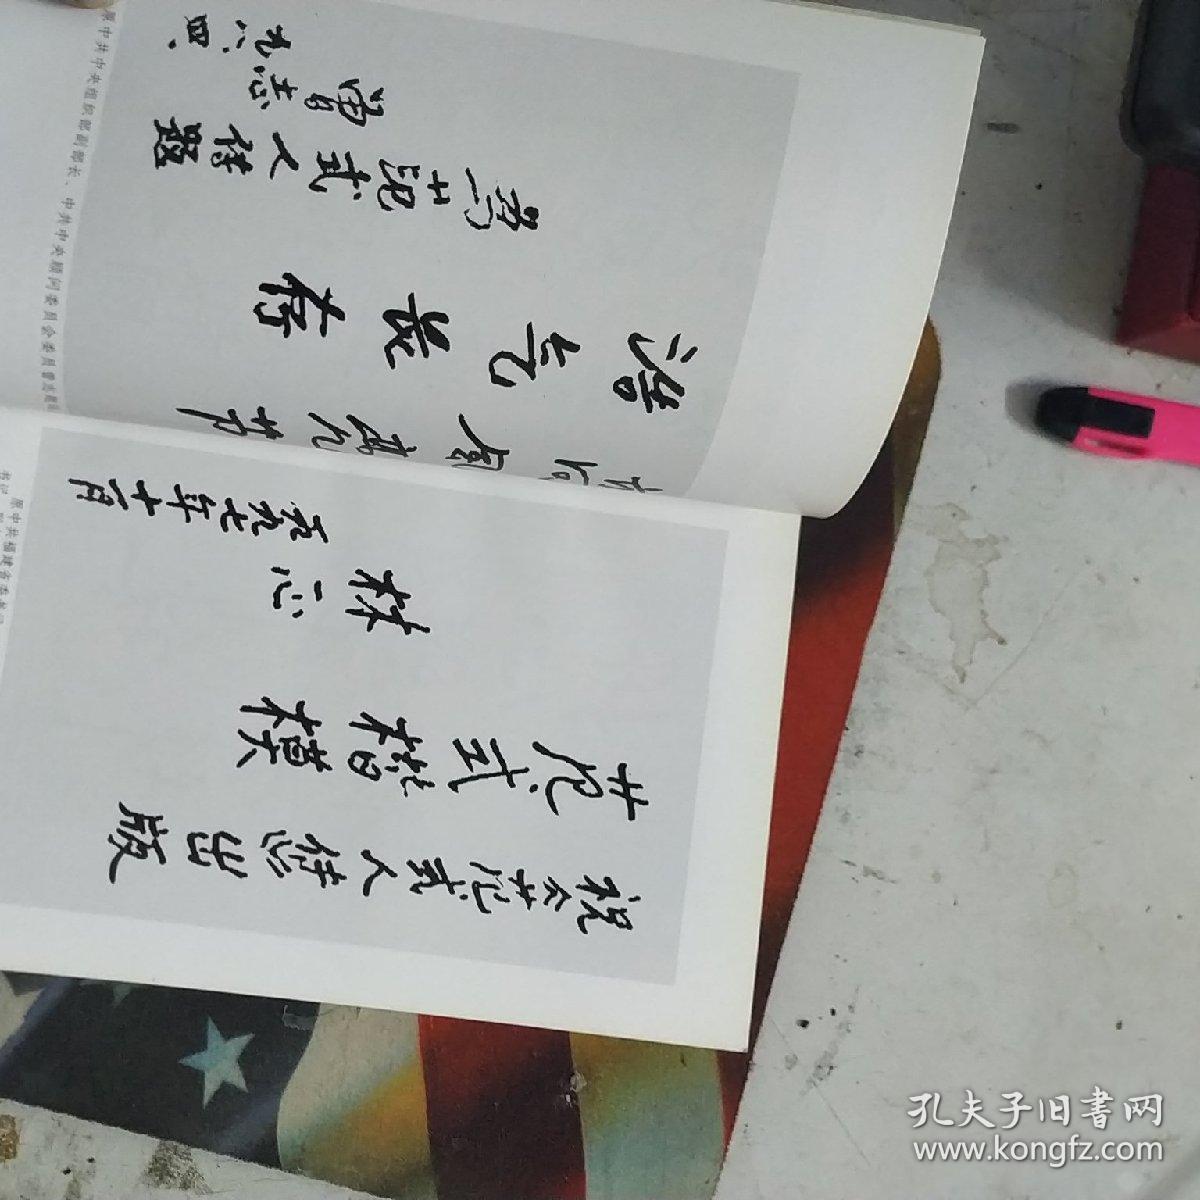 浩气长存
为范式人传题
曾志
一九八四、
原中共中央组织部副部长、中共中央顾问委员会委员曾志题
高风亮节
祝《范式人传》出版
范式楷模
林一心
一九九七年十一月
原中共福建省委书记
孔夫子旧书网
www.kongfz.com